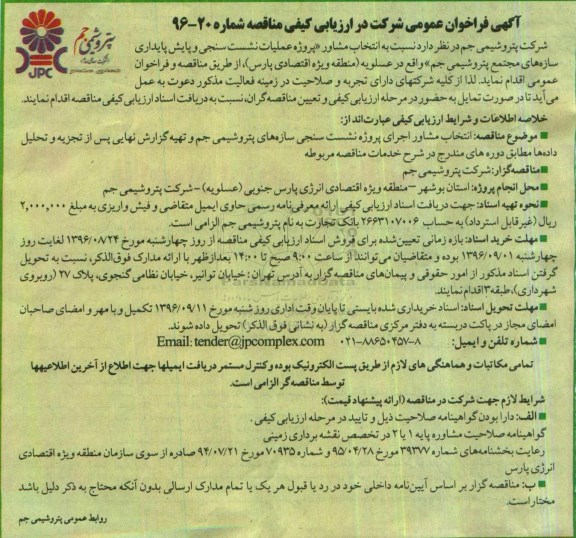 آگهی فراخوان عمومی شرکت در ارزیابی کیفی مناقصه شماره ۲۰-۹۶
پتروشیمی جم
JPC
شرکت پتروشیمی جم در نظر دارد نسبت به انتخاب مشاور «پروژه عملیات نشست سنجی و پایش پایداری
سازه‌های مجتمع پتروشیمی جم» واقع در عسلویه (منطقه ویژه اقتصادی پارس)، از طریق مناقصه و فراخوان
عمومی اقدام نماید. لذا از کلیه شرکتهای دارای تجربه و صلاحیت در زمینه فعالیت مذکور دعوت به عمل
می‌آید تا در صورت تمایل به حضور در مرحله ارزیابی کیفی و تعیین مناقصه گران، نسبت به دریافت اسناد ارزیابی کیفی مناقصه اقدام نمایند.
خلاصه اطلاعات و شرایط ارزیابی کیفی عبارت‌اند از:
■ موضوع مناقصه: انتخاب مشاور اجرای پروژه نشست سنجی سازه‌های پتروشیمی جم و تهیه گزارش نهایی پس از تجزیه و تحلیل
داده‌ها مطابق دوره های مندرج در شرح خدمات مناقصه مربوطه
■ مناقصه‌گزار: شرکت پتروشیمی جم
■ محل انجام پروژه: استان بوشهر – منطقه ویژه اقتصادی انرژی پارس جنوبی (عسلویه) – شرکت پتروشیمی جم
■ نحوه تهیه اسناد: جهت دریافت اسناد ارزیابی کیفی ارائه معرفی‌نامه رسمی حاوی ایمیل متقاضی و فیش واریزی به مبلغ ۲,۰۰۰,۰۰۰
ریال (غیرقابل استرداد) به حساب ۲۶۶۳۱۰۷۰۰۶ بانک تجارت به نام پتروشیمی جم الزامی است.
■ مهلت خرید اسناد: بازه زمانی تعیین‌شده برای فروش اسناد ارزیابی کیفی مناقصه از روز چهارشنبه مورخ ۱۳۹۶/۰۸/۲۴ لغایت روز
چهارشنبه ۱۳۹۶/۰۹/۰۱ بوده و متقاضیان می‌توانند از ساعت ۹:۰۰ صبح تا ۱۴:۰۰ بعدازظهر با ارائه مدارک فوق‌الذکر، نسبت به تحویل
گرفتن اسناد مذکور از امور حقوقی و پیمان‌های مناقصه گزار به آدرس تهران: خیابان توانیر، خیابان نظامی گنجوی، پلاک ۲۷ (روبروی
شهرداری)، طبقه ۳ اقدام نمایند.
■ مهلت تحویل اسناد: اسناد خریداری شده بایستی تا پایان وقت اداری روز شنبه مورخ ۱۳۹۶/۰۹/۱۱ تکمیل و با مهر و امضای صاحبان
امضای مجاز در پاکت دربسته به دفتر مرکزی مناقصه گزار (به نشانی فوق الذکر) تحویل داده شوند.
■ شماره تلفن و ایمیل: ۸-۸۸۶۵۰۴۵۷-۰۲۱ Email: tender@jpcomplex.com
تمامی مکاتبات و هماهنگی های لازم از طریق پست الکترونیک بوده و کنترل مستمر دریافت ایمیلها جهت اطلاع از آخرین اطلاعیهها
توسط مناقصه‌گر الزامی است.
شرایط لازم جهت شرکت در مناقصه (ارائه پیشنهاد قیمت):
■ الف: دارا بودن گواهینامه صلاحیت ذیل و تایید در مرحله ارزیابی کیفی.
گواهینامه صلاحیت مشاوره پایه ۱ یا ۲ در تخصص نقشه برداری زمینی
رعایت بخشنامه‌های شماره ۳۹۳۷۷ مورخ ۹۵/۰۴/۲۸ و شماره ۷۰۹۳۵ مورخ ۹۴/۰۷/۲۱ صادره از سوی سازمان منطقه ویژه اقتصادی
انرژی پارس
■ ب: مناقصه گزار بر اساس آیین‌نامه داخلی خود در رد یا قبول هر یک یا تمام مدارک ارسالی بدون آنکه محتاج به ذکر دلیل باشد
مختار است.
روابط عمومی پتروشیمی جم